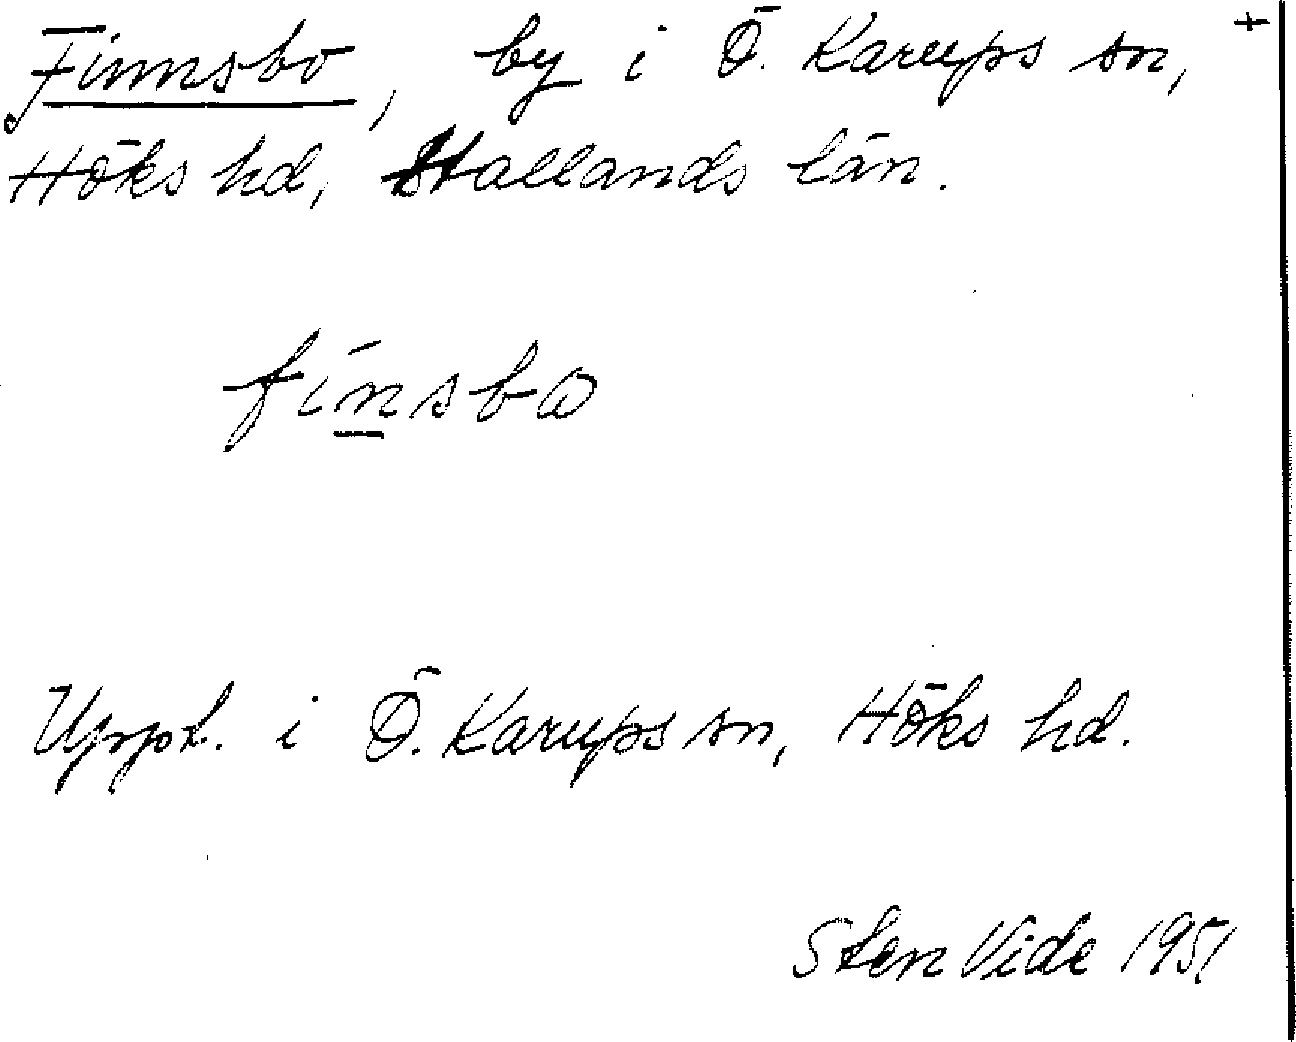 Finnsbo, by i Ö. Karups sn, +
Höks hd, Hallands län.
fínsbω
Uppt. i Ö. Karups sn, Höks hd.
Sten Vide 1951